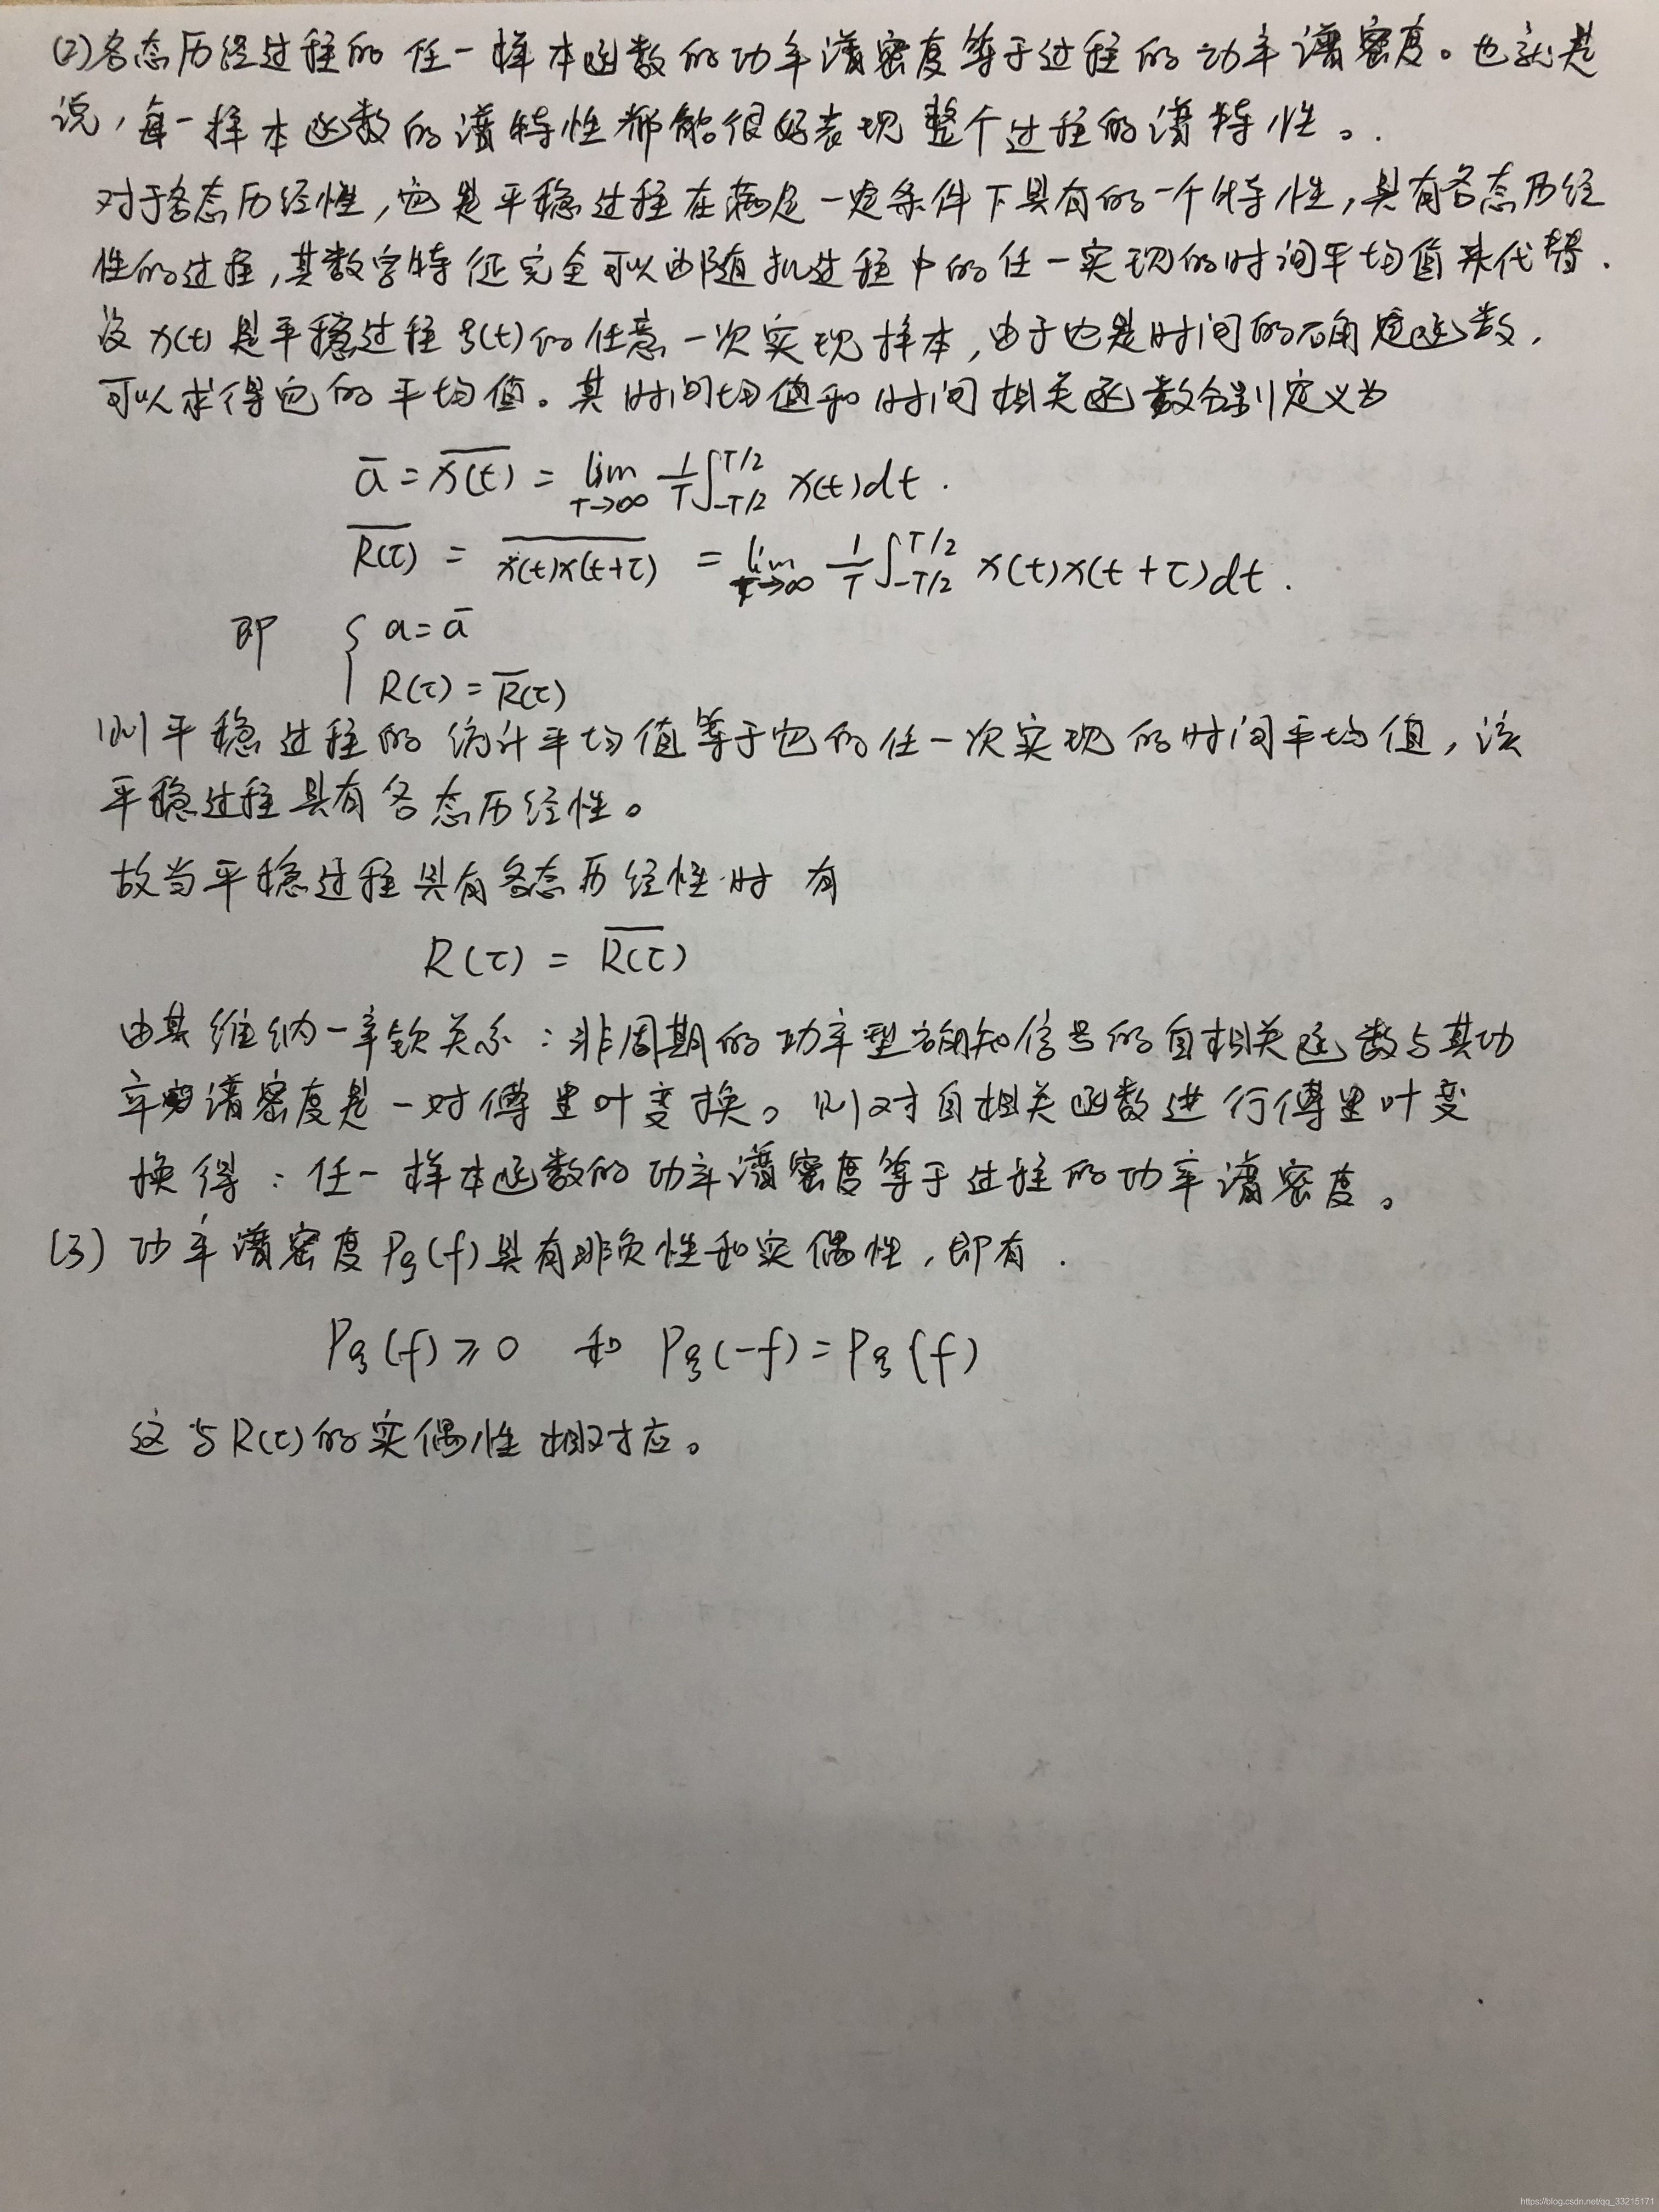 (2)各态历经过程的任一样本函数的功率谱密度等于过程的功率谱密度。也就是
说,每一样本函数的谱特性都能很好表现整个过程的谱特性。.
对于各态历经性,它是平稳过程在满足一定条件下具有的一个特性,具有各态历经
性的过程,其数字特征完全可以由随机过程中的任一实现的时间平均值来代替.
设 x(t) 是平稳过程 ξ(t) 的任意一次实现样本,由于它是时间的确定函数,
可以求得它的平均值。其时间均值和时间相关函数分别定义为
ā = \overline{x(t)} = lim_{T→∞} 1/T ∫_{-T/2}^{T/2} x(t)dt .
\overline{R(τ)} = \overline{x(t)x(t+τ)} = lim_{T→∞} 1/T ∫_{-T/2}^{T/2} x(t)x(t+τ)dt .
即 { a = ā
R(τ) = \overline{R(τ)}
则平稳过程的统计平均值等于它的任一次实现的时间平均值,该
平稳过程具有各态历经性。
故当平稳过程具有各态历经性时 有
R(τ) = \overline{R(τ)}
由其维纳-辛钦关系:非周期的功率型确知信号的自相关函数与其功
率谱密度是一对傅里叶变换。则对自相关函数进行傅里叶变
换得:任一样本函数的功率谱密度等于过程的功率谱密度。
(3) 功率谱密度 Pξ(f) 具有非负性和实偶性,即有 .
Pξ(f) ≥ 0 和 Pξ(-f) = Pξ(f)
这与R(τ)的实偶性相对应。
https://blog.csdn.net/qq_33215171